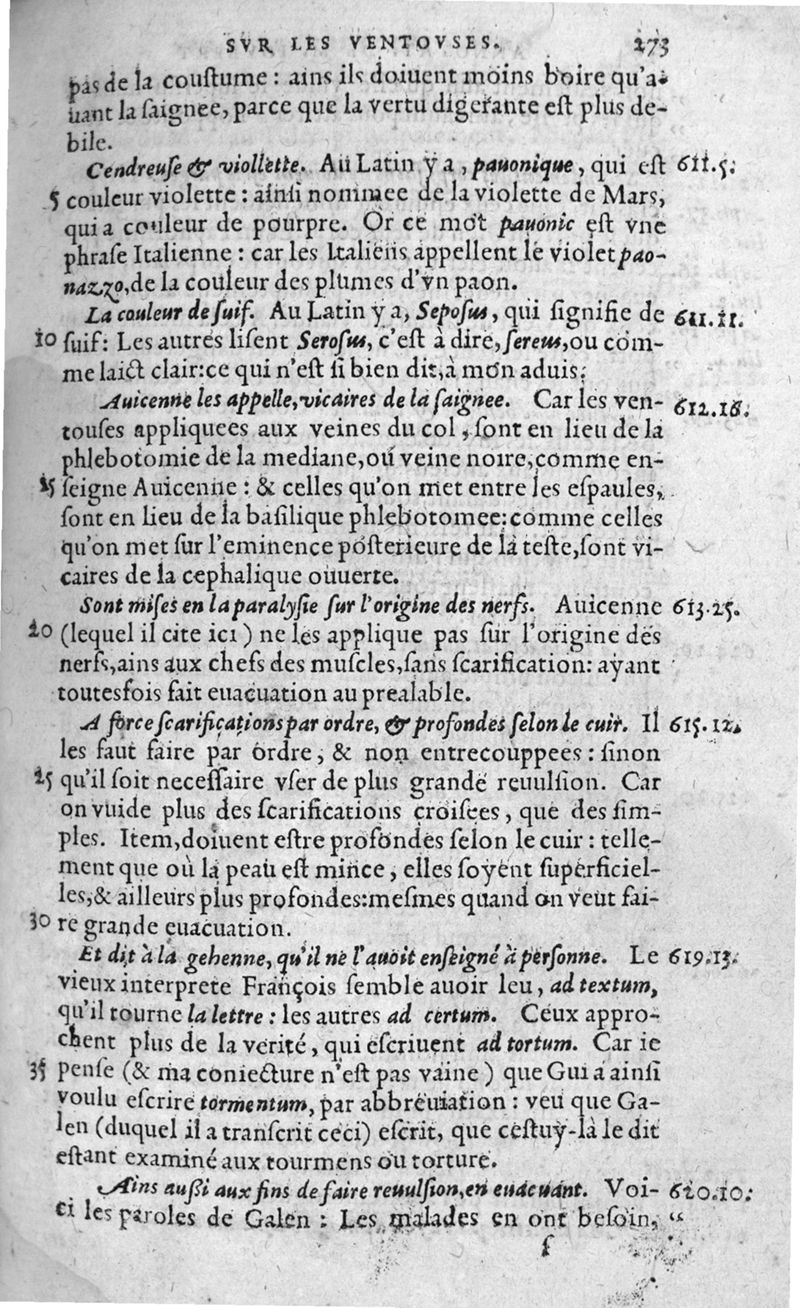 SVR LES VENTOVSES. 273
pas de la couſtume : ains ils doiuent moins boire qu'a-
uant la ſaignee, parce que la vertu digerante eſt plus de-
bile.
Cendreuſe & viollette. Au Latin y a , pauonique, qui eſt 611.5.
5 couleur violette : ainſi nommee de la violette de Mars,
qui a couleur de pourpre. Or ce mot pauonic eſt vne
phraſe Italienne : car les Italiens appellent le violet pao-
nazzo, de la couleur des plumes d'vn paon.
La couleur de ſuif. Au Latin y a, Sepoſus, qui ſignifie de 611.11.
10 ſuif: Les autres liſent Seroſus, c'eſt à dire, ſereus, ou com-
me laict clair: ce qui n'eſt ſi bien dit, à mon aduis.
Auicenne les appelle, vicaires de la ſaignee. Car les ven- 612.18.
touſes appliquees aux veines du col , ſont en lieu de la
phlebotomie de la mediane, ou veine noire, comme en-
15 ſeigne Auicenne : & celles qu'on met entre les eſpaules,
ſont en lieu de la baſilique phlebotomee: comme celles
qu'on met ſur l'eminence poſterieure de la teſte, ſont vi-
caires de la cephalique ouuerte.
Sont miſes en la paralyſie ſur l'origine des nerfs. Auicenne 613.25.
20 (lequel il cite ici ) ne les applique pas ſur l'origine des
nerfs, ains aux chefs des muſcles, ſans ſcarification: ayant
toutesfois fait euacuation au prealable.
A force ſcarifications par ordre, & profondes ſelon le cuir. Il 615.12.
les faut faire par ordre , & non entrecouppees : ſinon
25 qu'il ſoit neceſſaire vſer de plus grande reuulſion. Car
on vuide plus des ſcarifications croiſees , que des ſim-
ples. Item, doiuent eſtre profondes ſelon le cuir : telle-
ment que où la peau eſt mince , elles ſoyent ſuperficiel-
les, & ailleurs plus profondes: meſmes quand on veut fai-
30 re grande euacuation.
Et dit à la gehenne, qu'il ne l'auoit enſeigné à perſonne. Le 619.13.
vieux interprete François ſemble auoir leu , ad textum,
qu'il tourne la lettre : les autres ad certum. Ceux appro-
chent plus de la verité , qui eſcriuent ad tortum. Car ie
35 penſe (& ma coniecture n'eſt pas vaine ) que Gui a ainſi
voulu eſcrire tormentum, par abbreuiation : veu que Ga-
len (duquel il a tranſcrit ceci) eſcrit, que ceſtuy-là le dit
eſtant examiné aux tourmens ou torture.
Ains auſſi aux fins de faire reuulſion, en euacuant. Voi- 620.10.
ci les paroles de Galen : Les malades en ont beſoin, “
ſ